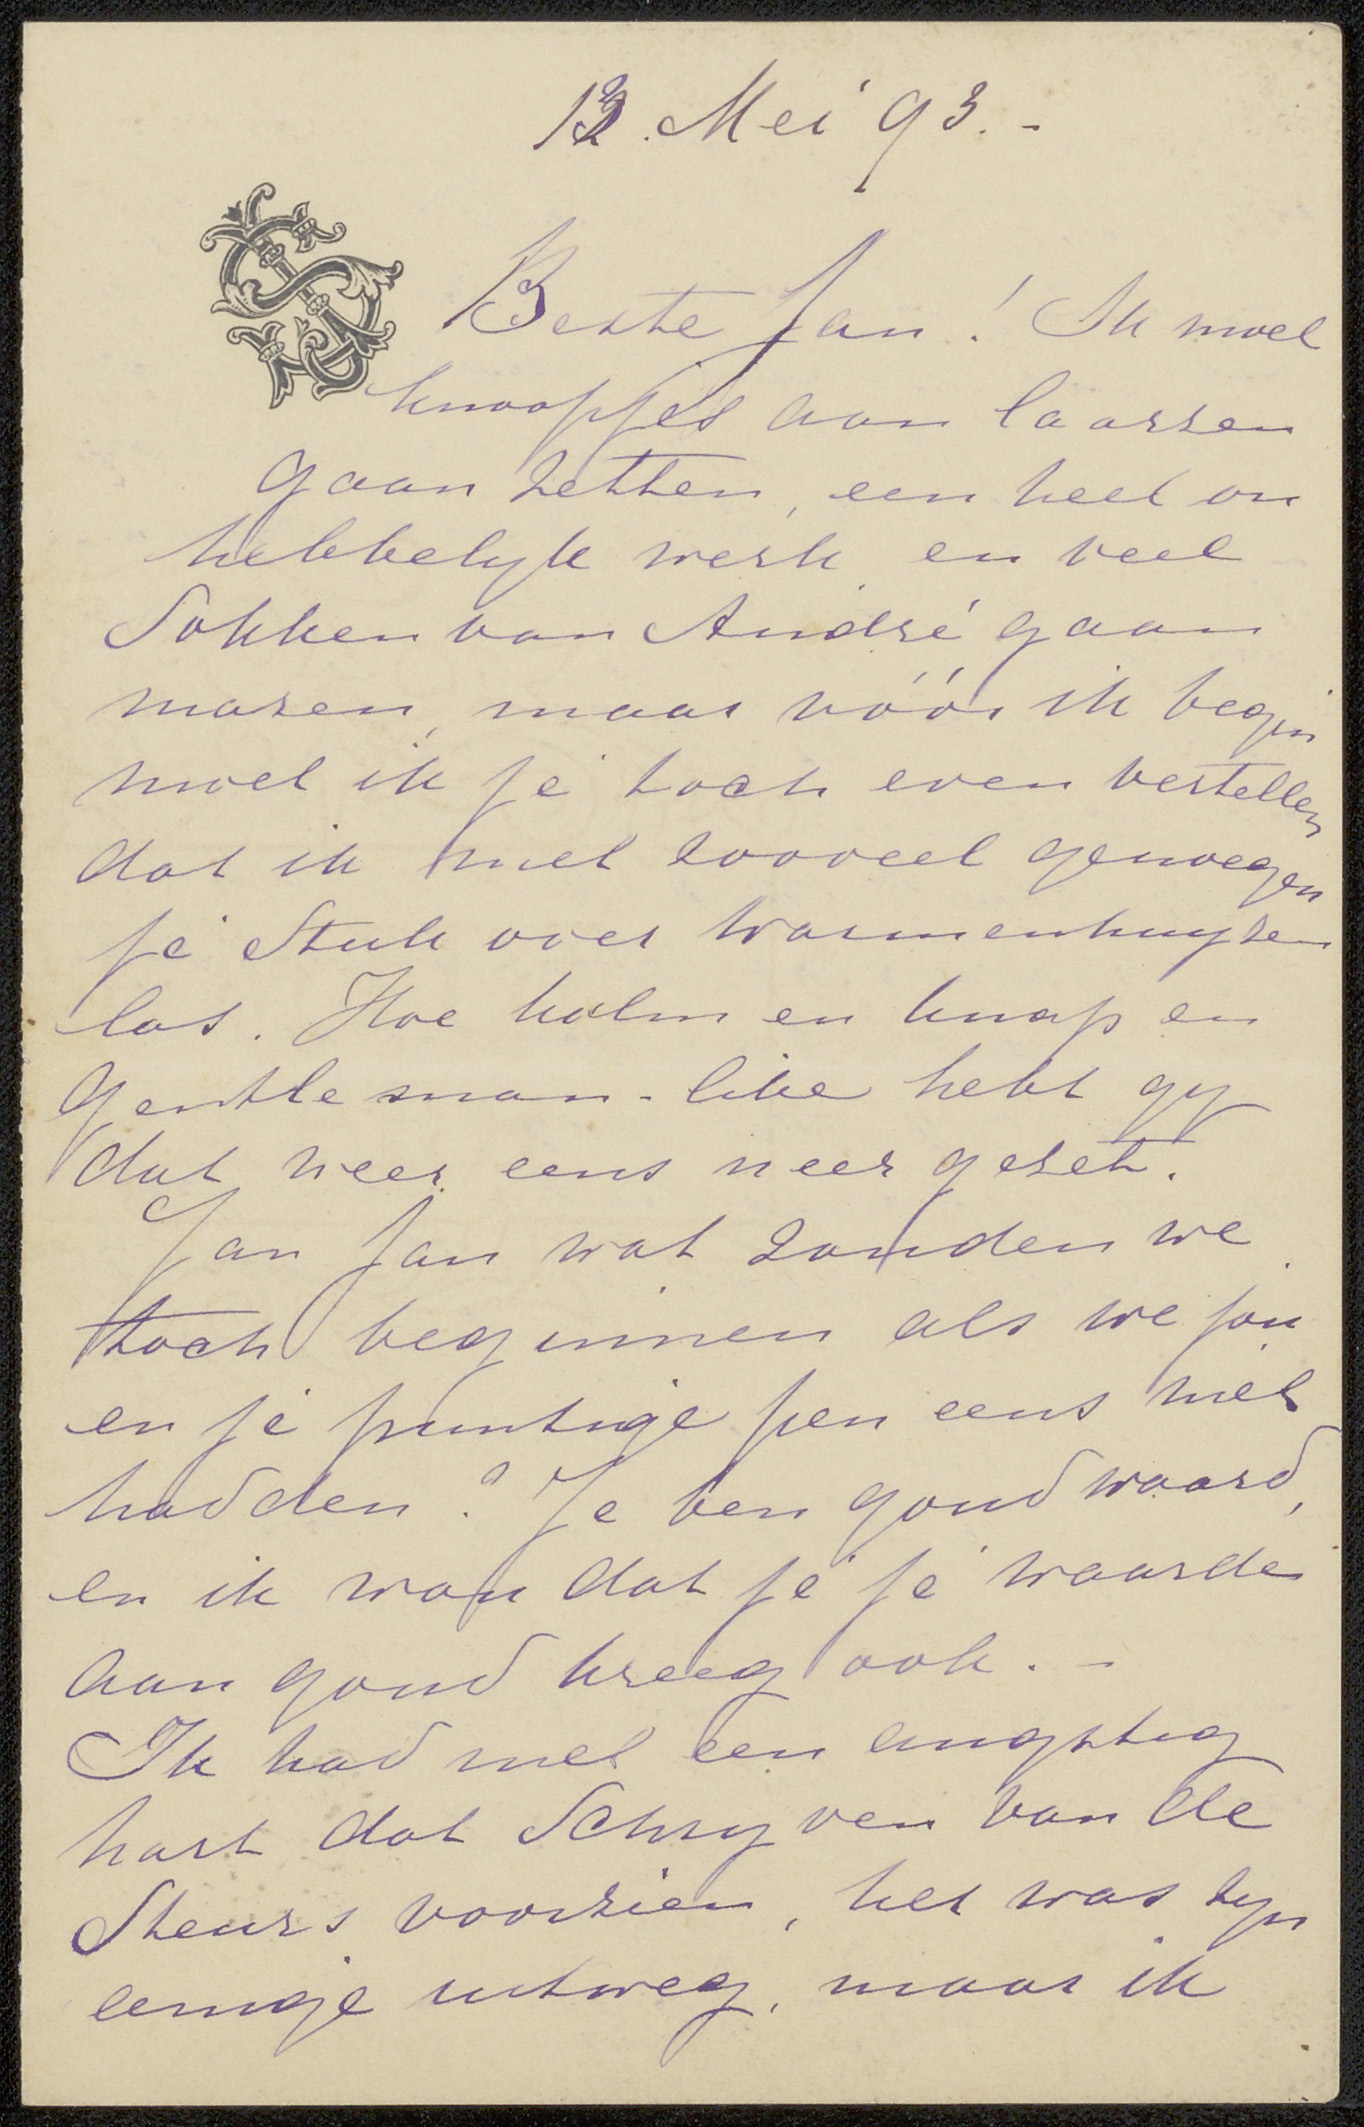 13 Mei '93. -
Beste Jan! Ik moet
knoopjes aan laarsen
gaan zetten, een heel on
hebbelyk werk en veel
Sokken van André gaan
mazen, maar vóór ik begin
moet ik je toch even vertellen
dat ik met zooveel genoegen
je Stuk over Warmenhuyzen
las. Hoe kalm en knap en
gentleman-like hebt gy
dat weer eens neer gezet.
Jan Jan wat zouden we
toch beginnen als we jou
en je puntige pen eens niet
hadden? Je ben goud waard,
en ik wou dat je je waarde
aan goud kreeg ook. -
Ik had met een angstig
hart dat Schryven van de
Steurs voorzien, het was zyn
eenige uitweg, maar ik